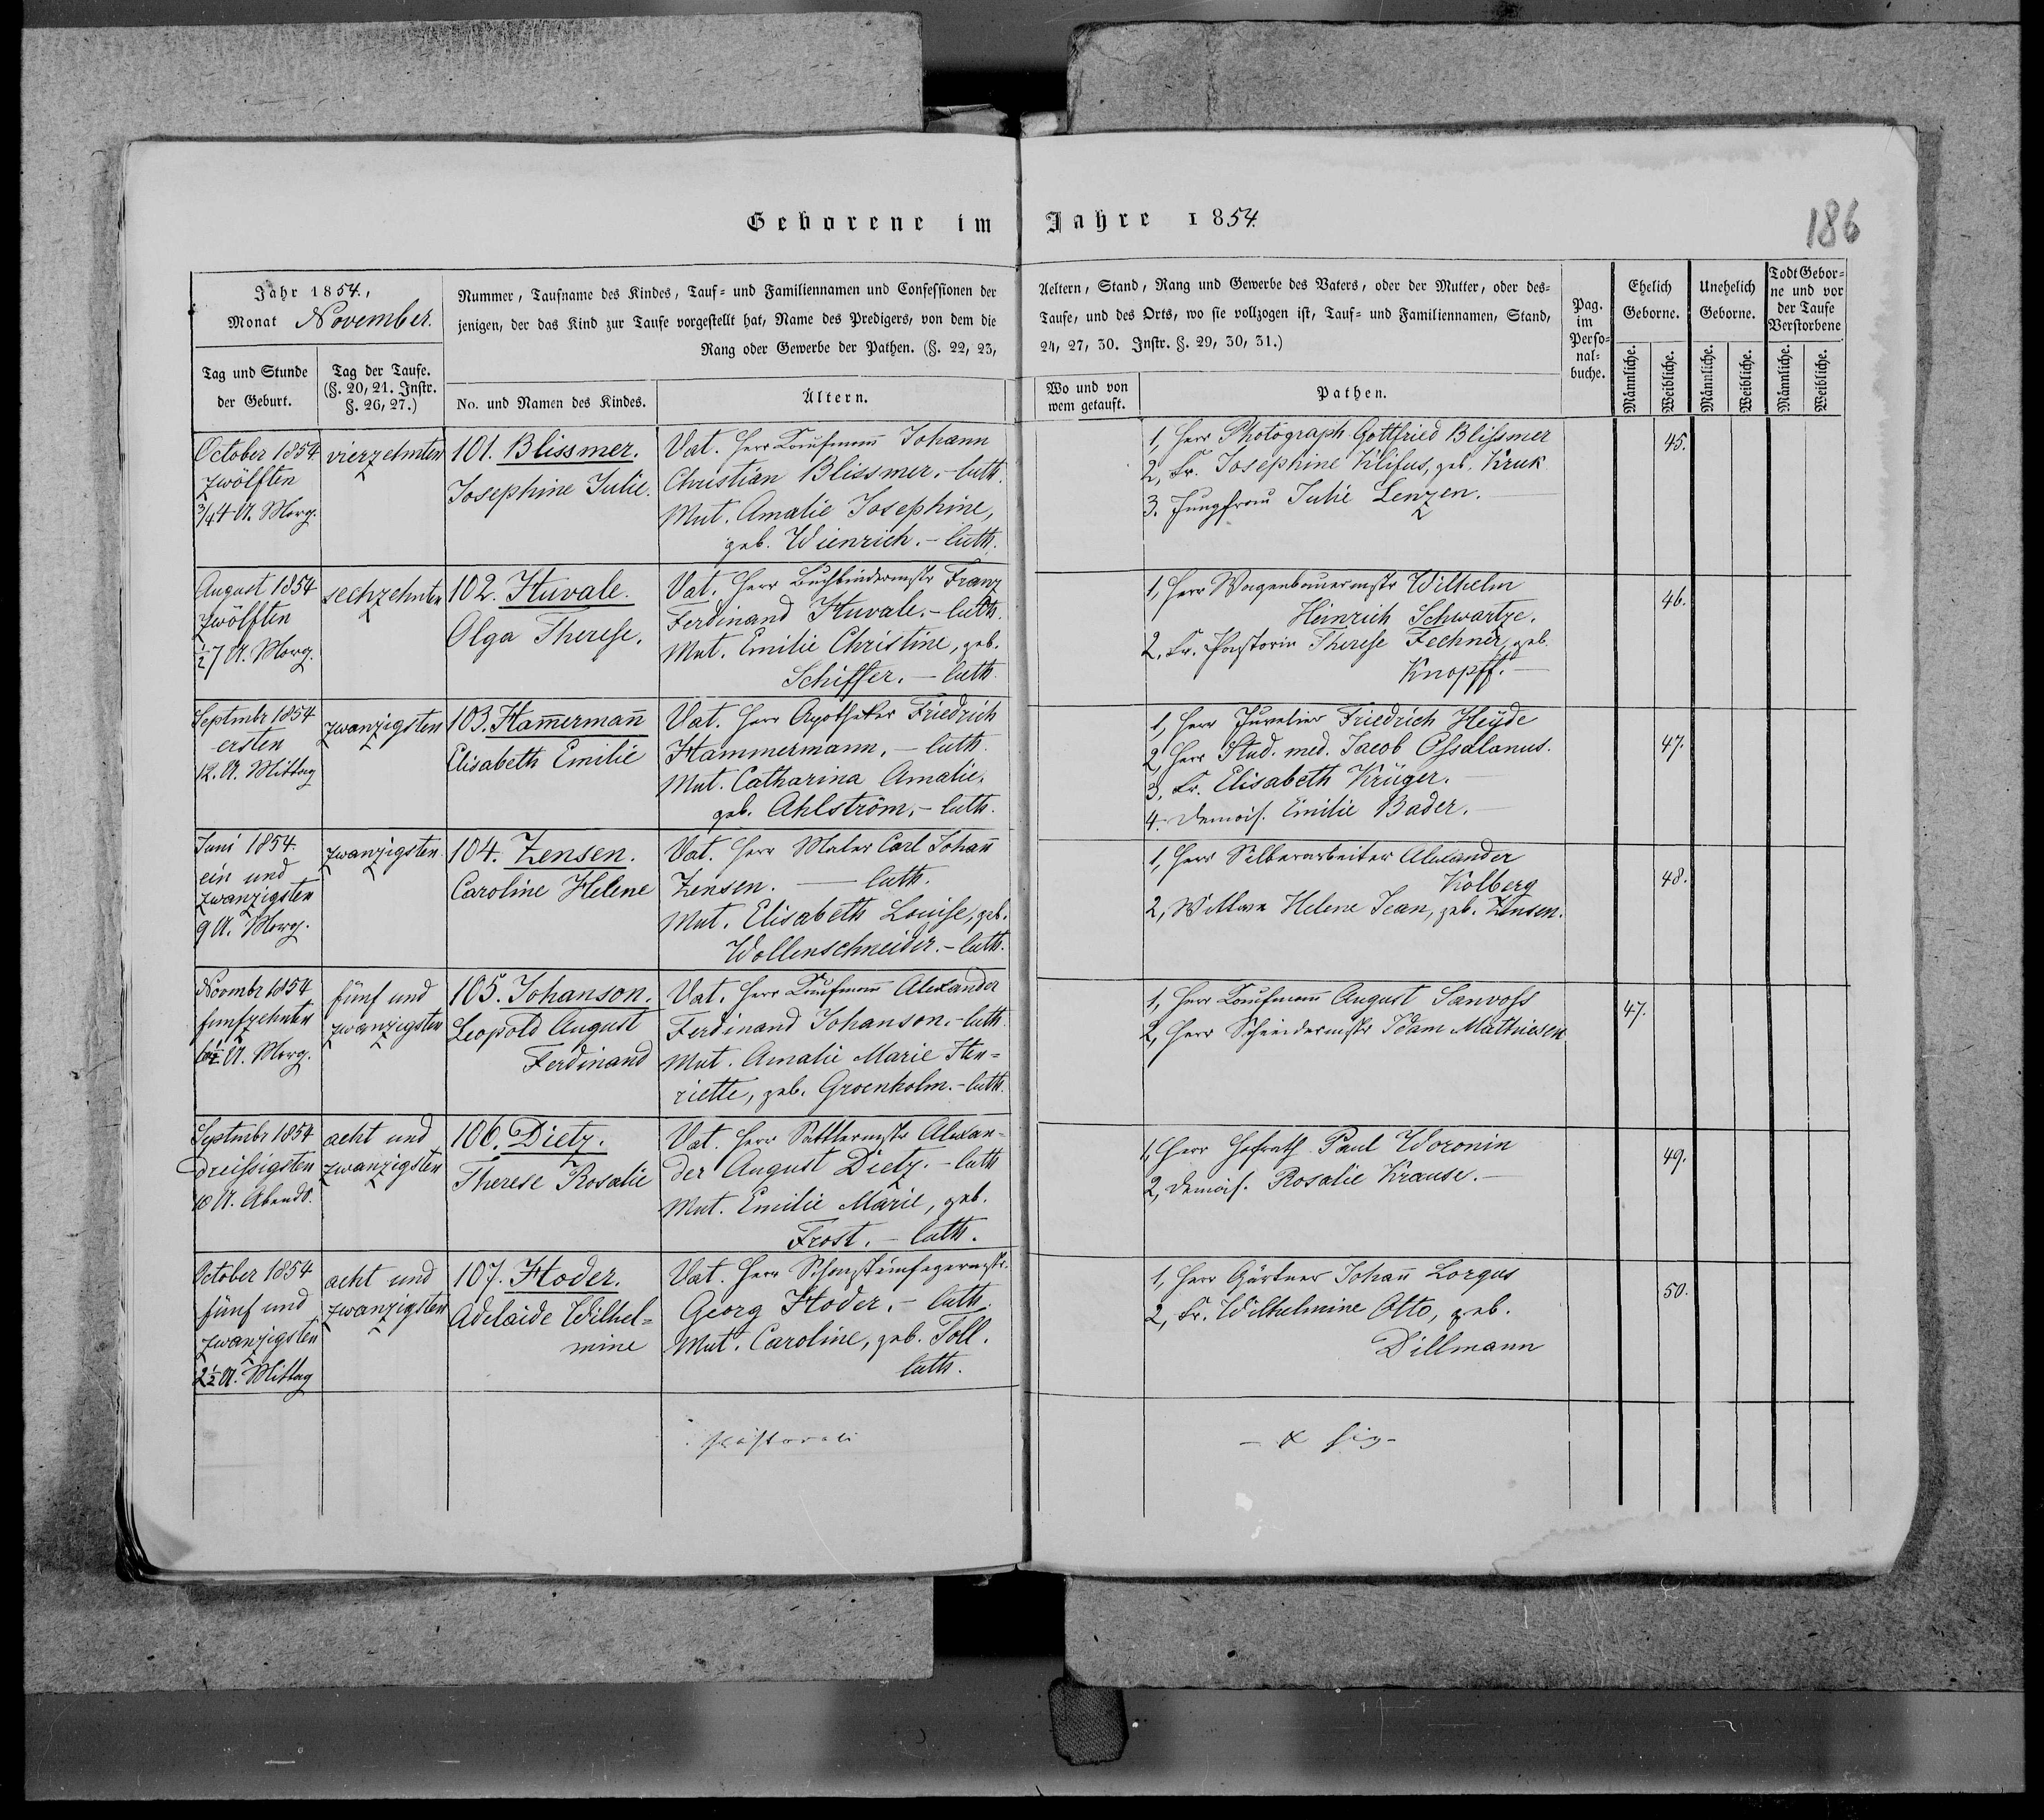 Geborene im Jahre 1854.
186
Jahr 1854.,
Monat November.
Tag und Stunde
der Geburt.
Tag der Taufe.
(§. 20, 21. Instr.
§. 26, 27.)
Nummer, Taufname des Kindes, Tauf- und Familiennamen und Confessionen der
jenigen, der das Kind zur Taufe vorgestellt hat, Name des Predigers, von dem die
Rang oder Gewerbe der Pathen. (§. 22, 23,
No. und Namen des Kindes.
Ältern.
Aeltern, Stand, Rang und Gewerbe des Vaters, oder der Mutter, oder des-
Taufe, und des Orts, wo sie vollzogen ist, Tauf- und Familiennamen, Stand,
24, 27, 30. Instr. §. 29, 30, 31.)
Wo und von
wem getauft.
Pathen.
Pag.
im
Perso-
nal-
buche.
Ehelich
Geborne.
Unehelich
Geborne.
Todt Gebor-
ne und vor
der Taufe
Verstorbene
Männliche.
Weibliche.
Männliche.
Weibliche.
Männliche.
Weibliche.
October 1854
zwölften
3/4 4 U. Morg.
vierzehnten
101. Blissmer.
Josephine Julie.
Vat. Herr Kaufmann Johann
Christian Blissmer. - luth.
Mut. Amalie Josephine,
geb. Wienrich. - luth.
1, Herr Photograph Gottfried Blissmer
2, Fr. Josephine Klifus, geb. Kruk
3. Jungfrau Julie Lenzen.
45.
August 1854
zwölften
1/2 7 U. Morg.
sechzehnten
102. Huvale.
Olga Therese.
Vat. Herr Buchbindermstr Franz
Ferdinand Huvale. - luth.
Mut. Emilie Christine, geb.
Schiffer. - luth.
1, Herr Wagenbauermstr Wilhelm
Heinrich Schwartze.
2. Fr. Pastorin Therese Fechner, geb.
Knopff. -
46.
Septmbr 1854
ersten
12. U. Mittag
zwanzigsten
103. Ham̄erman̄
Elisabeth Emilie
Vat. Herr Apotheker Friedrich
Hammermann. - luth.
Mut. Catharina Amalie,
geb. Ahlström. - luth.
1, Herr Juvelier Friedrich Heyde
2, Herr Stud. med. Jacob
3, Fr. Elisabeth Krüger.
4. Demois. Emilie Bader. -
47.
Juni 1854.
ein und
zwanzigsten
9 U. Morg.
zwanzigsten
104. Zensen.
Caroline Helene
Vat. Herr Maler Carl Johan̄
Zensen. - luth.
Mut. Elisabeth Louise, geb.
Wollenschneider. - luth.
1, Herr Silberarbeiter Alexander
Kolberg
2, Wittwe Helene Jean, geb. Zensen.
48.
Novmbr 1854
funfzehnten
6 1/2 U. Morg.
fünf und
zwanzigsten
105. Johanson.
Leopold August
Ferdinand
Vat. Herr Kaufmann Alexander
Ferdinand Johanson. - luth.
Mut. Amalie Marie Hen-
riette, geb. Groenholm. - luth.
1, Herr Kaufmann August Sanvoss
2, Herr Schneidermstr Mathiesen
47.
Septmbr 1854
dreissigsten
10 U. Abends.
acht und
zwanzigsten
106. Dietz.
Therese Rosalie
Vat. Herr Sattlermstr Alexan-
der August Dietz. - luth
Mut. Emilie Marie, geb.
Frost. - luth.
1, Herr Hofrath Paul Woronin
2, Demois. Rosalie Krause. -
49.
October 1854
fünf und
zwanzigsten
2 1/2 U. Mittag
acht und
zwanzigsten
107. Hoder.
Adelaide Wilhel-
mine
Vat. Herr Schornsteinfegermstr.
Georg Hoder. - luth.
Mut. Caroline, geb. Toll.
luth.
1, Herr Gärtner Johan̄ Lorgus
2, Fr. Wilhelmine Otto, geb.
Dillmann
50.